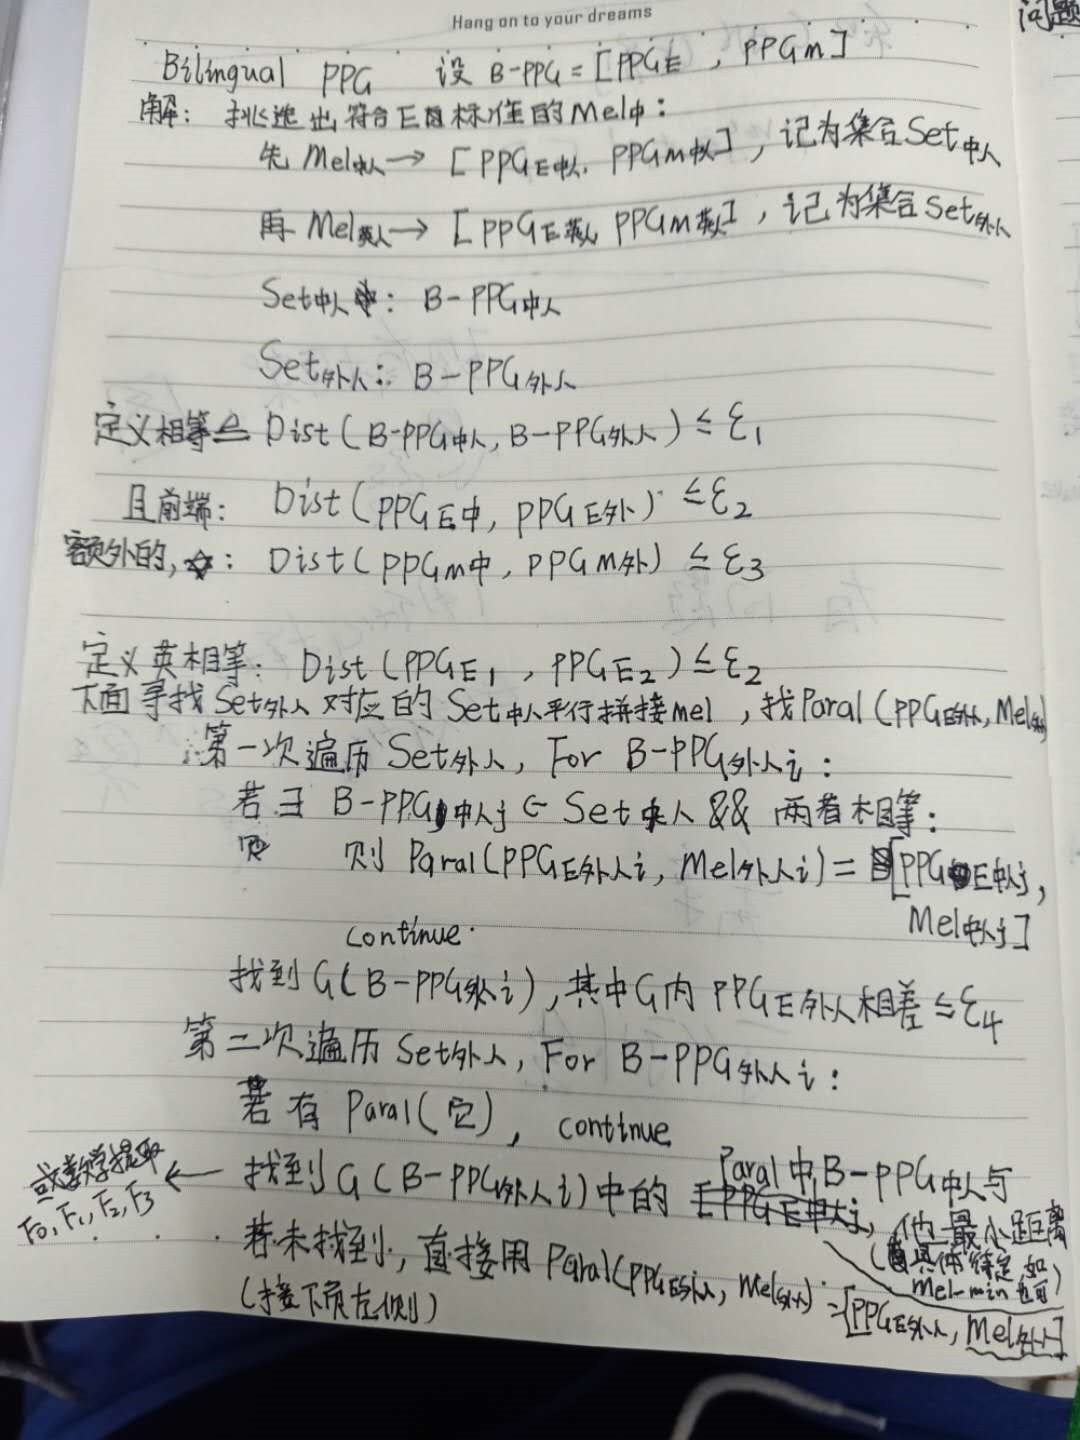 Hang on to your dreams
问题
Bilingual PPG 设 B-PPG = [PPGE , PPGm]
解: 挑选出符合E标准的Mel中:
先 Mel中人 → [PPGE中人, PPGm中人], 记为集合Set中人
再 Mel英人 → [PPGE英人 PPGm英人], 记为集合Set外人
Set中人: B-PPG中人
Set外人: B-PPG外人
定义相等 Dist(B-PPG中人, B-PPG外人) ≤ ε1
且前端: Dist(PPGE中, PPGE外) ≤ε2
额外的, ☆: Dist(PPGm中, PPGm外) ≤ ε3
定义英相等: Dist(PPGE1 , PPGE2) ≤ε2
下面寻找Set外人对应的Set中人平行拼接mel ,找Paral(PPGE外人, Mel外)
第一次遍历 Set外人, For B-PPG外人i :
若∃ B-PPG中人j ∈ Set中人 && 两者相等:
则 则 Paral(PPGE外人i, Mel外人i) = [PPGE中人j,
Mel中人j]
continue.
找到G(B-PPG外人i), 其中G内 PPGE外人相差 ≤ε4
第二次遍历 Set外人, For B-PPG外人i :
若有 Paral(它), continue
或数学提取 ← 找到G(B-PPG外人i)中的 Paral中B-PPG中人与
F0, F1, F2, F3
他最小距离
(具体待定如
Mel-min也可)
若未找到, 直接用 Paral(PPGE外人, Mel外人) = [PPGE外人, Mel外人]
(接下页左侧)